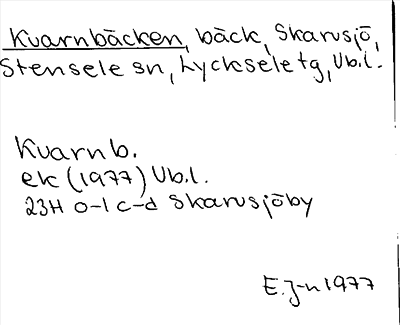 Kvarnbäcken, bäck, Skarvsjö,
Stensele sn, Lycksele tg, Vb.l.
Kvarnb.
ek (1977) Vb.l.
23H 0-1 c-d Skarvsjöby
E.J-n 1977